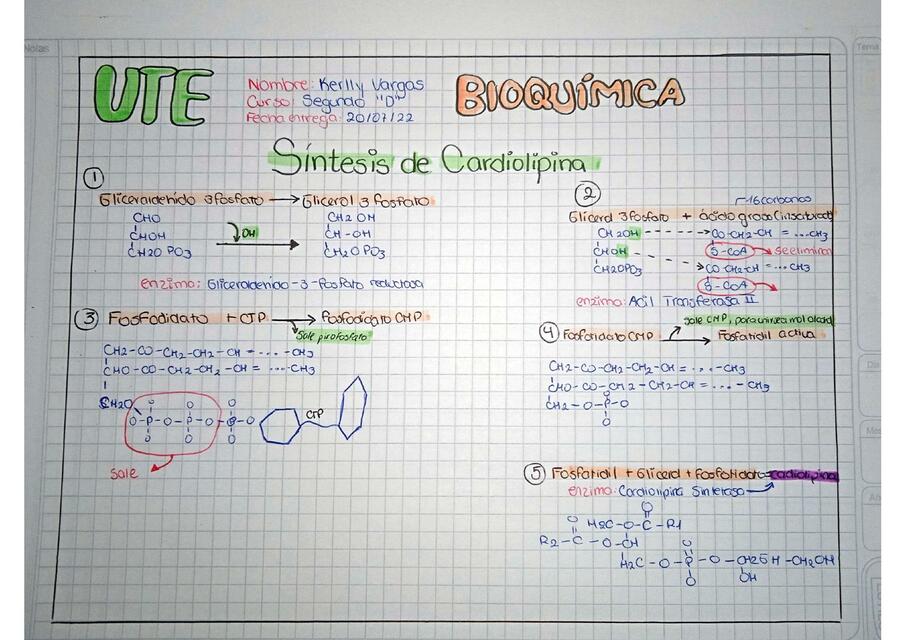 Notas
Tema
UTE
Nombre: Kerlly Vargas
Curso: Segundo "D"
Fecha entrega: 20/07/22
BIOQUÍMICA
Síntesis de Cardiolipina
1
Gliceraldehido 3fosfato → Glicerol 3 fosfato
CHO
CHOH
CH2O PO3
OH
CH2 OH
CH-OH
CH2O PO3
enzima: Gliceraldehido-3-fosfato reductasa
2
16 carbonos
Glicerol 3fosfato + ácido graso (insaturado)
CH2OH ----→ CO-CH2-CH = ...CH3
S-CoA → se elimina
CHOH - - - → CO CH2-CH = ...CH3
CH2OPO3
S-CoA →
enzima: Acil Transferasa II
3
Fosfadidato + CTP → Fosfadidato CMP
Sale pirofosfato
CH2-CO-CH2-CH2-CH = ... -CH3
CHO-CO-CH2-CH2-CH = ... -CH3
CH2O
O O O
O-P-O-P-O-P-O
O O O
CTP
Sale
4
Sale CMP, para unirse a mol alcohol
Fosfatidato CMP → Fosfatidil activa
CH2-CO-CH2-CH2-CH = ... -CH3
CHO-CO-CH2-CH2-CH = ... -CH3
CH2-O-P-O
O
5
Fosfatidil + Glicerol + Fosfatidato = cadiolipina
enzima: Cardiolipina Sintetasa
O
O H2C-O-C-R1
R2-C-O-CH
O
H2C-O-P-O-CH2CH-CH2OH
O OH